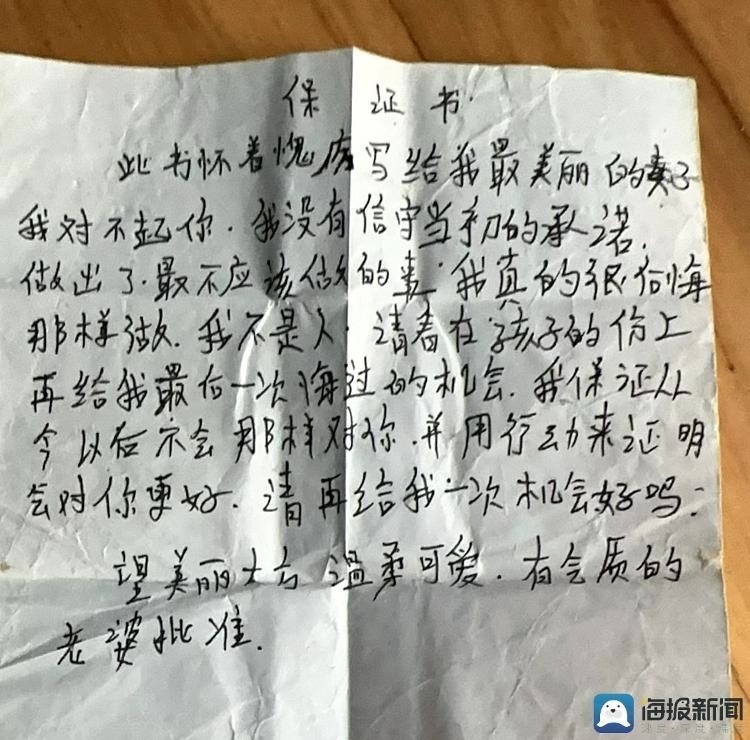 保证书
此书怀着愧疚写给我最美丽的妻子
我对不起你.我没有信守当初的承诺.
做出了.最不应该做的事.我真的很后悔
那样做.我不是人.请看在孩子的份上
再给我最后一次悔过的机会.我保证从
今以后不会那样对你.并用行动来证明
会对你更好.请再给我一次机会好吗:
望美丽大方温柔可爱.有会质的
老婆批准.
海报新闻